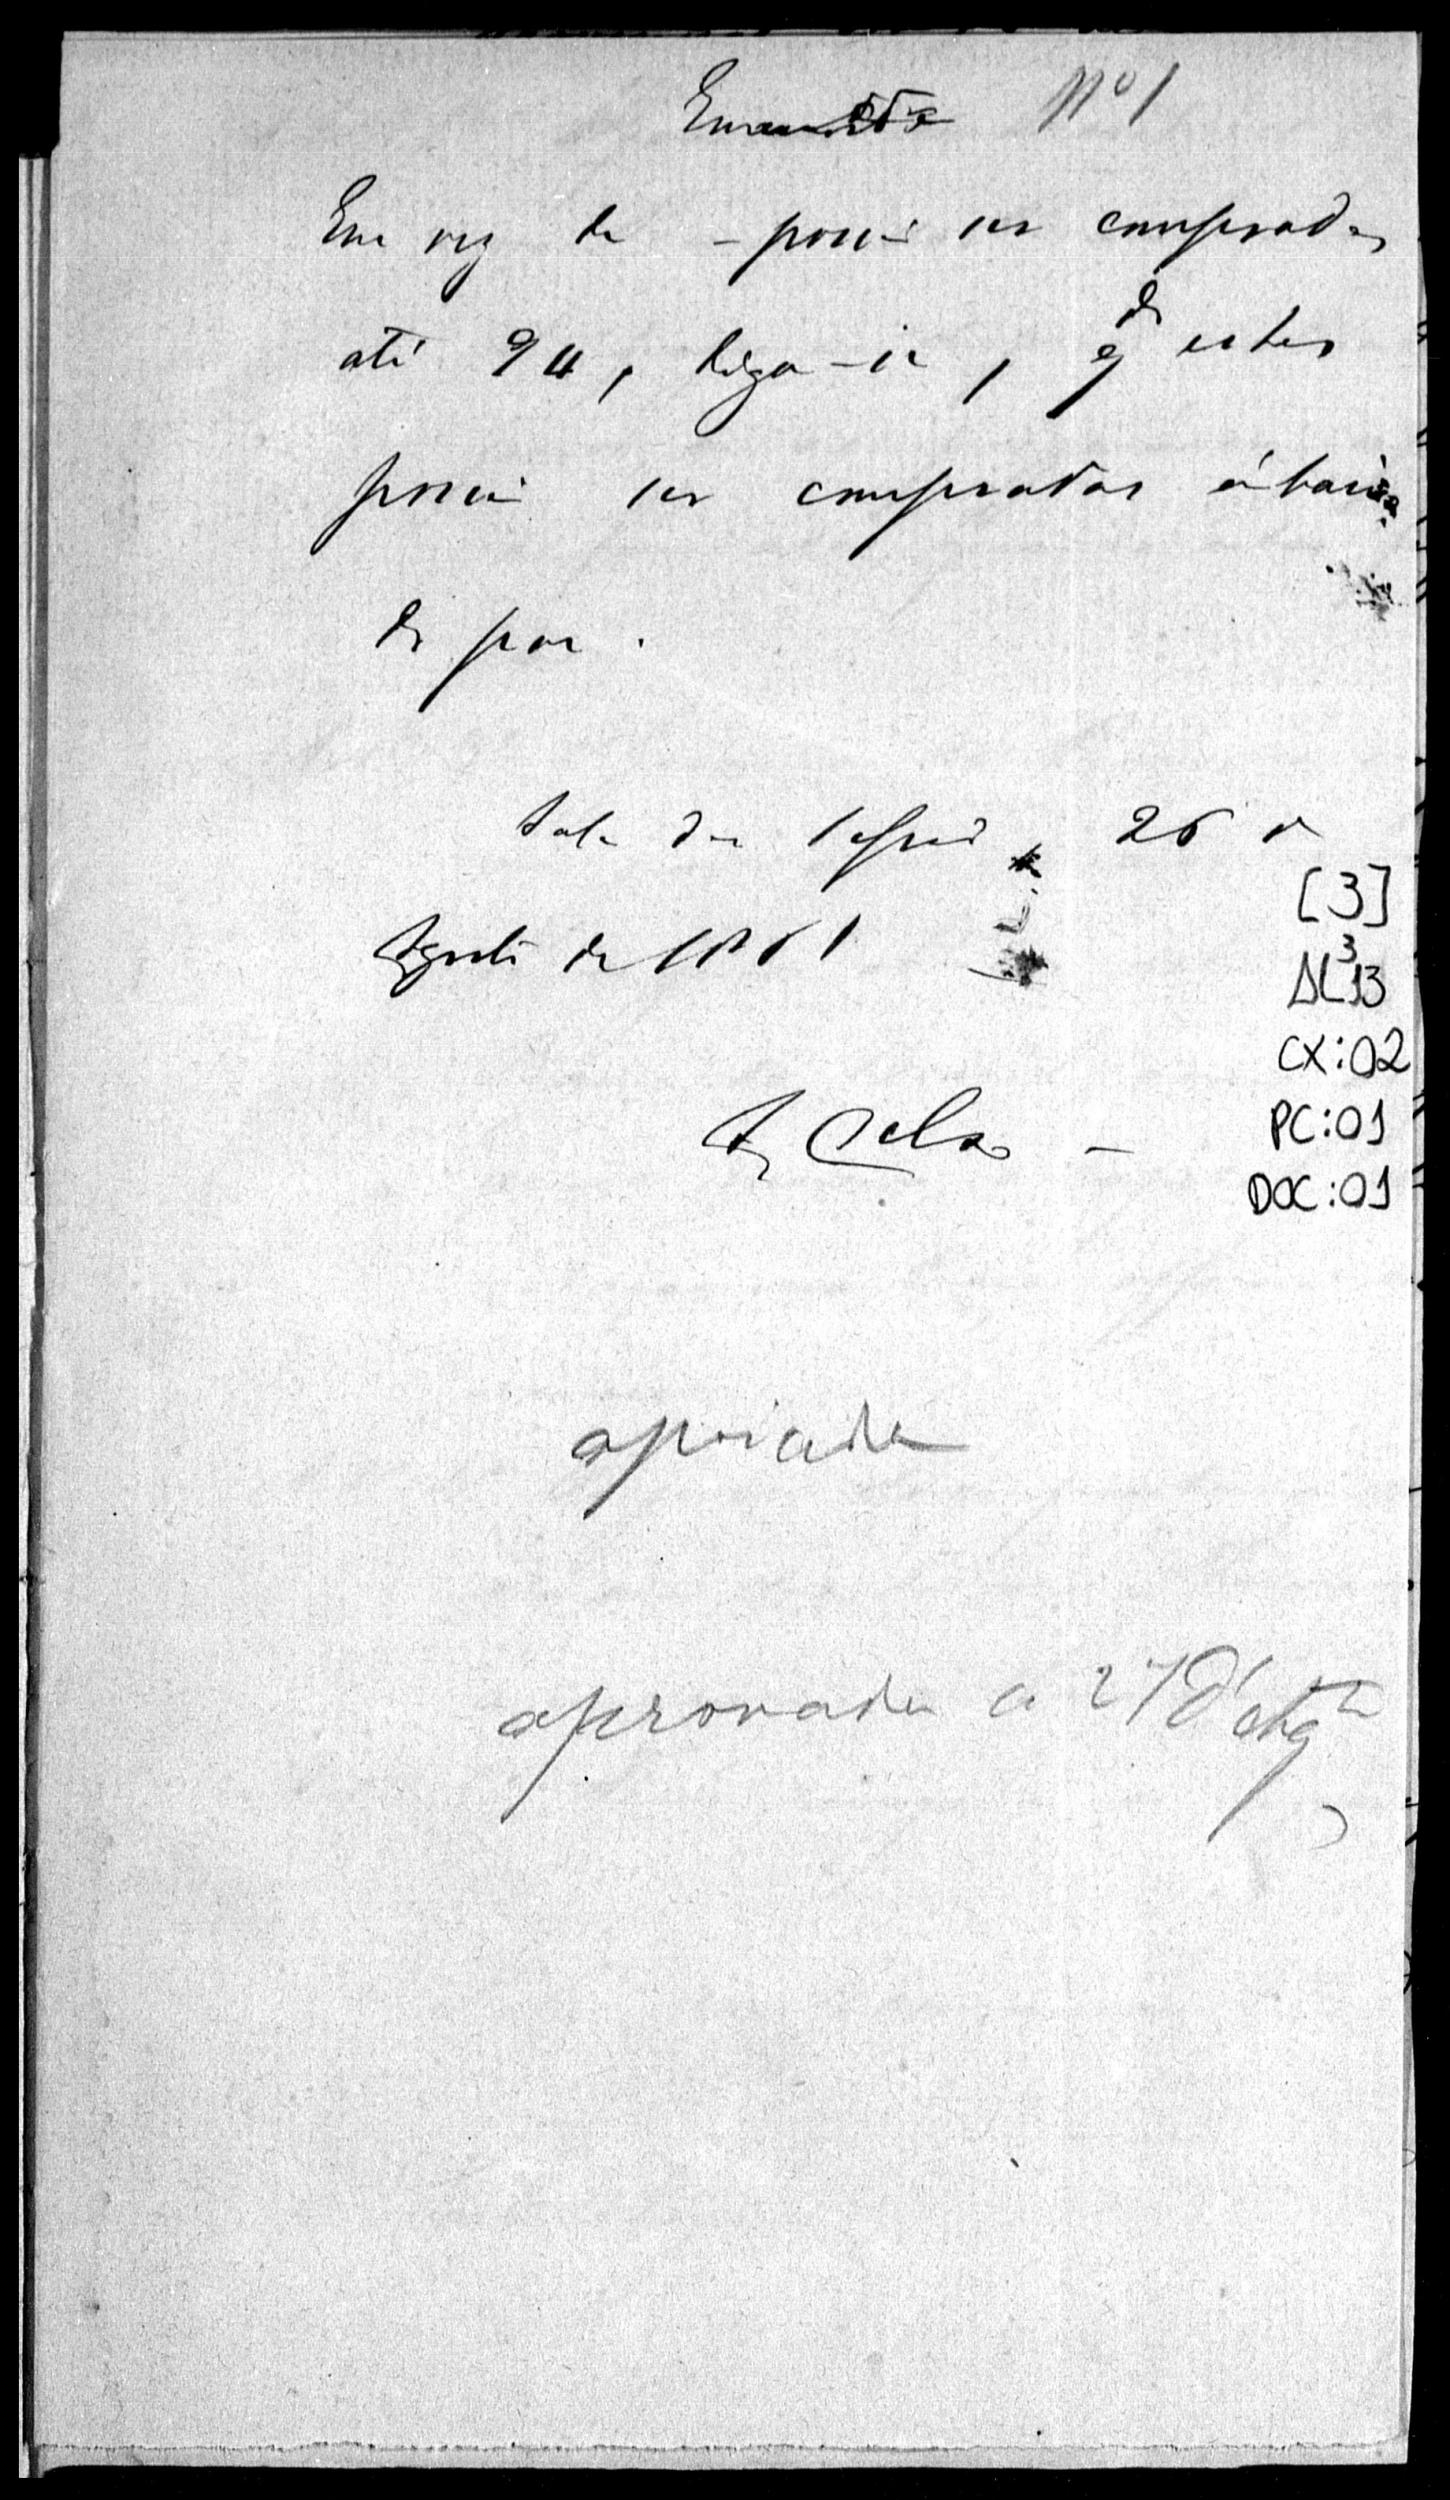 Emenda Nº 1
Em vez de - possão ser comprados
até 94, diga-se, q dr estes
possão ser comprados abaixo
do par.
Sala das sessões, 26 d
Agosto de 1861
A. Celso -
[3]
AL 3 13
CX:02
PC:01
DOC:01
apoiada
aprovada a 27 d'Agto